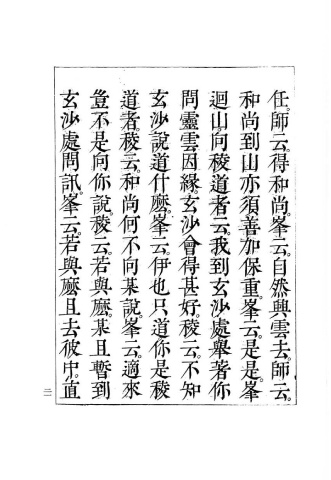 任師云得和尚峯云自然興雲去師云
和尚到山亦須善加保重峯云是是峯
迴山向稜道者云我到玄沙處舉著你
問靈雲因緣玄沙會得甚好稜云不知
玄沙說道什麼峯云伊也只道你是稜
道者稜云和尚何不向某說峯云適來
豈不是向你說稜云若與麼某且暫到
玄沙處問訊峯云若與麼且去彼中直
二